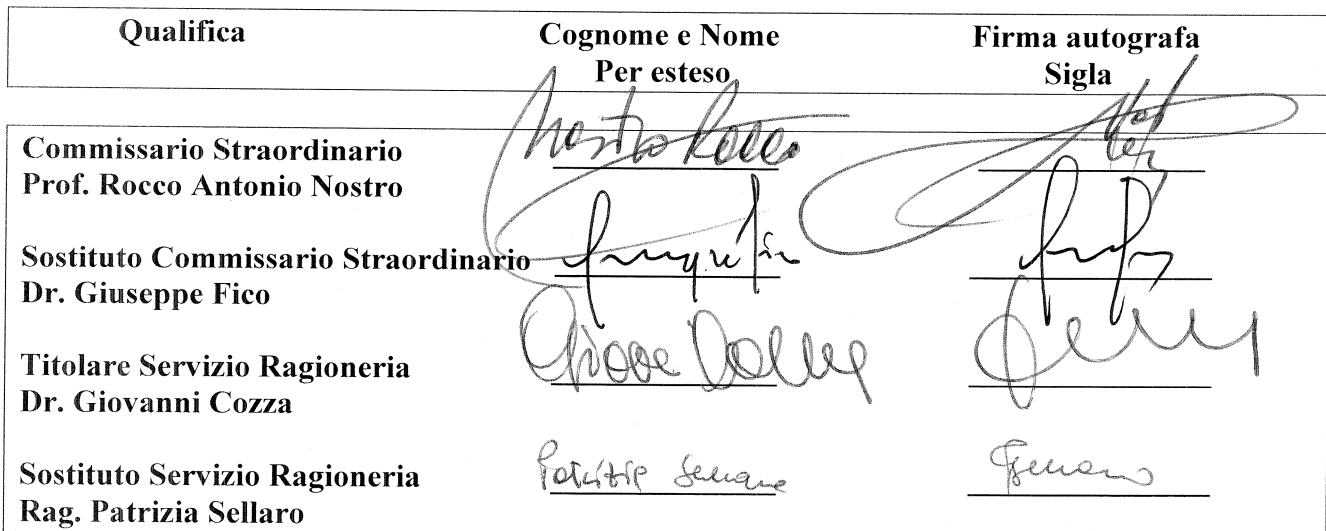 Qualifica
Cognome e Nome
Per esteso
Firma autografa
Sigla
Commissario Straordinario
Prof. Rocco Antonio Nostro
Nostro Rocco
Sostituto Commissario Straordinario
Dr. Giuseppe Fico
Titolare Servizio Ragioneria
Dr. Giovanni Cozza
Sostituto Servizio Ragioneria
Rag. Patrizia Sellaro